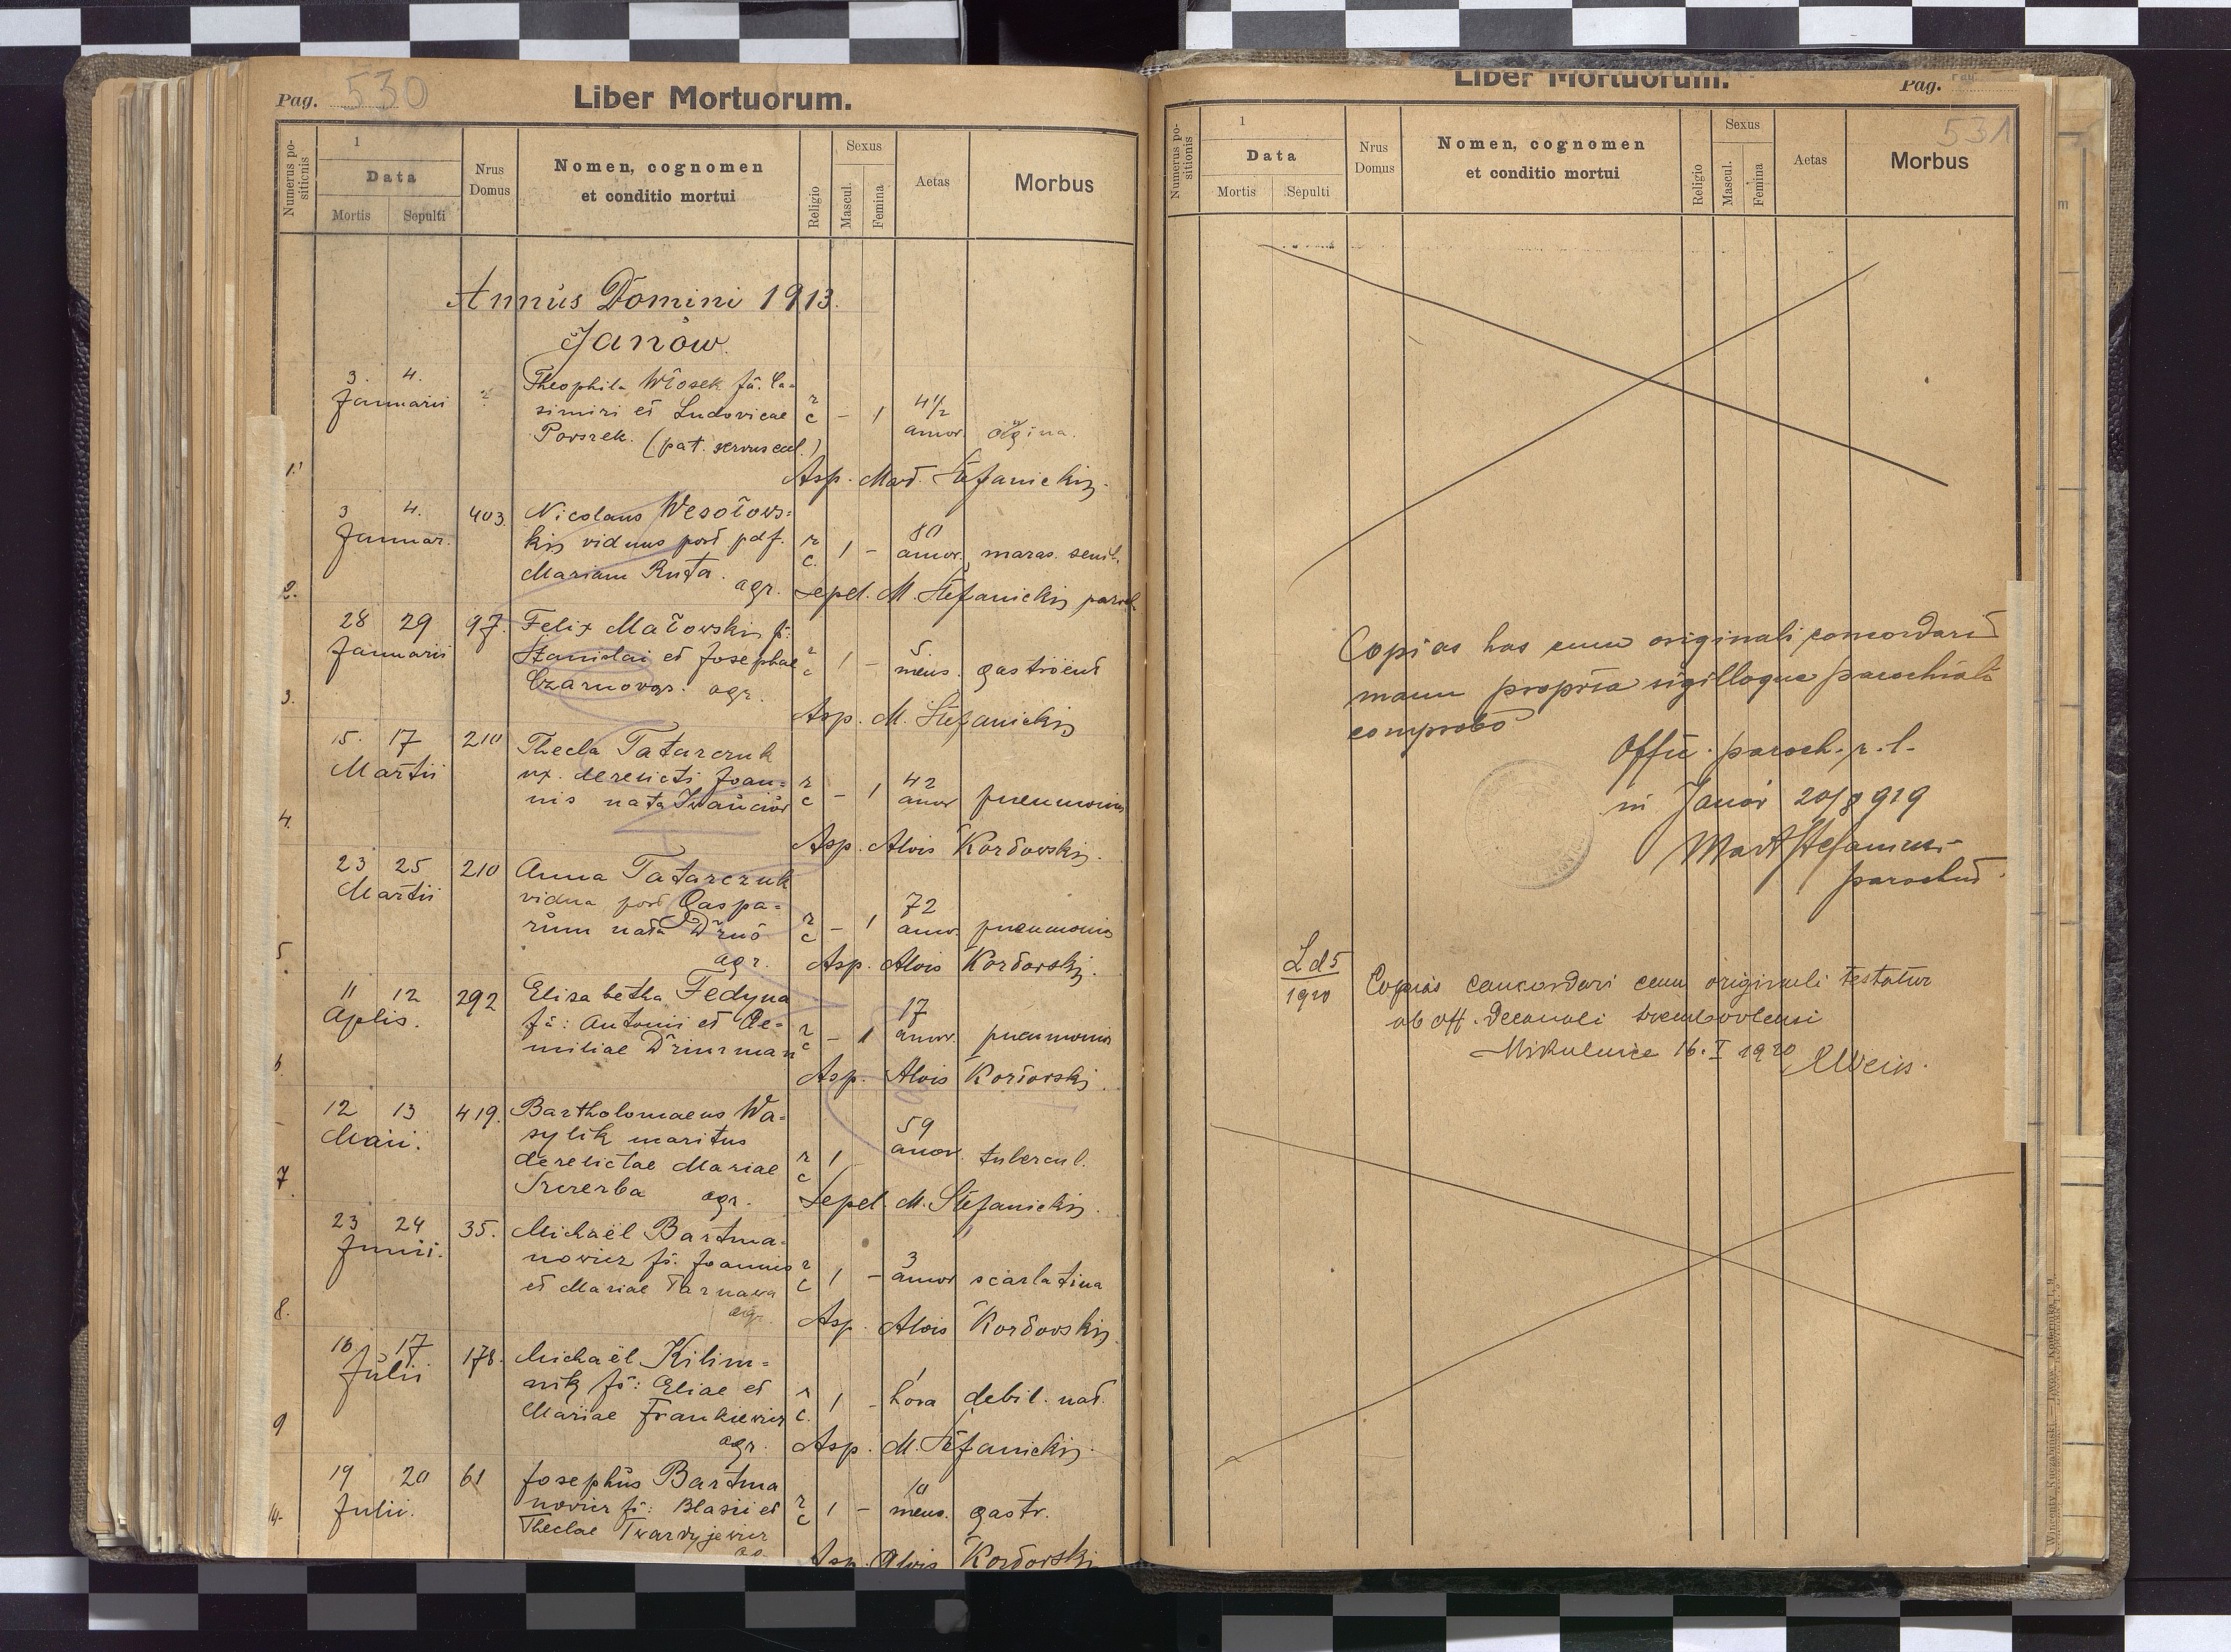 Pag. 530
Liber Mortuorum.
Numerus positionis
1
Data
Mortis Sepulti
Nrus Domus
Nomen, cognomen
et conditio mortui
Religio
Sexus
Mascul. Femina
Aetas
Morbus
Annus Domini 1913.
Janów
3. 4. Theophila Włosek fa. Ca=
Januarii simiri et Ludovicae r c - 1 4 1/2
Porszek. (pat. servus cul.) annor. angina.
1. Asp. Mart. Stefanickij
3 4. 403. Nicolaus Wesołows=
Januar. kij viduus post pdf. r c. 1 - 80 annor. maras. senil.
Mariam Ruta. agr.
2. Sepel. M. Stefanickij paroch
28 29 97. Felix Małowskij f:
Januarii Stanislai et Josephae r c 1 - 5 mens. gastroent
Czarnovos. agr.
3. Asp. M. Stefanickij
15. 17 210 Thecla Tatarczuk
Martii ux. derelicti Joan= r c - 1 42 annor pneumonia
nis nata Iwańciów
4. Asp. Alois Kordowskij.
23 25 210 Anna Tatarczuk
Martii vidua post Gaspa= 72
rum nata r c - 1 annor. pneumonia
agr.
5. Asp. Alois Kordovskij.
11 12 292 Elisabetha Fedyna
Aplis. fa: Antonii et Ae= r c - 1 17 annor. pneumonia
miliae Dziurman
6. Asp. Alois Kordovskj.
12 13 419. Bartholomaeus Wa=
Maii. sylik maritus 59
derelictae Mariae r c 1 annor. tubercul.
Szczerba agr.
7. Sepel. M. Stefanickij.
23 24 35. Michaël Bartma=
Junii. nowicz fs. Joannis r c 1 - 3 annor scarlatina
et Mariae Tarnawa
agr.
8. Asp. Alois Kordovskij.
16 17 178. Michaël Kilim=
Julii nik fs: Eliae et r c. 1 - 1 hora debil. nat.
Mariae Frankiewicz
agr.
9 Asp. M. Stefanickij.
19 20 61 Josephus Bartma
Julii. novicz fs: Blasii et r c 1 - 10 mens. gastr.
Theclae Twardyjewicz
Asp. Alois Kordovskj
Liber Mortuorum.
Pag. 531
Numerus positionis
1
Data
Mortis Sepulti
Nrus Domus
Nomen, cognomen
et conditio mortui
Religio
Sexus
Mascul. Femina
Aetas
Morbus
Copias has cum originali concordari
manu propria sigilloque parochiali
comprobo
Offic. paroch. r. l.
in Janów 20/8 919
Mart Stefanicki
parochus
L d 5
1920
Copias concordari cum originali testatur
ab off. Decanali trembovlensi
Mikulince 16. I 1920